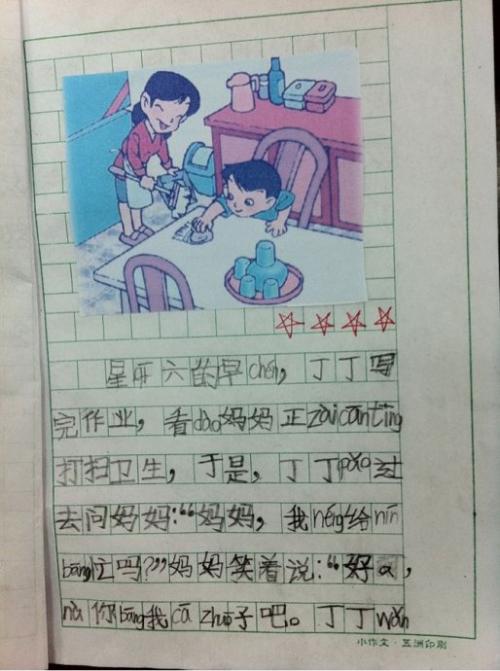 星研六的早chén，丁丁写
完作业，看dào妈妈正zàicāntīng
打扫卫生，于是，丁丁pǎo过
去问妈妈：“妈妈，我néng给nín
bāng忙吗？”妈妈笑着说：“好a，
nà你bāng我cā zhuō子吧。丁丁wán
小作文·五洲印刷